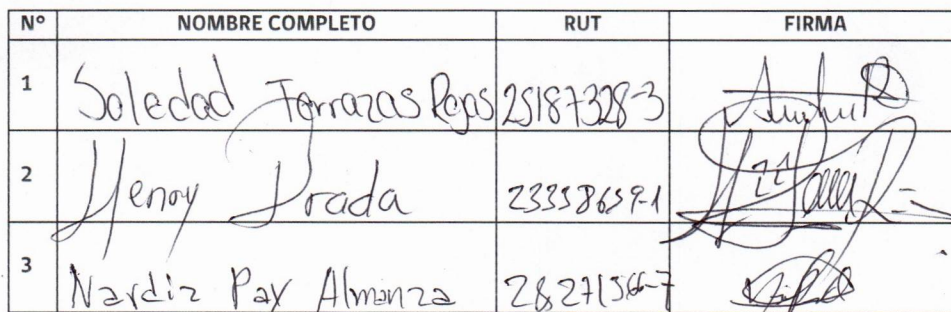 N° NOMBRE COMPLETO RUT FIRMA
1 Soledad Terrazas Rojas 25187328-3
2 Henry Prada 23338659-1
3 Nardiz Pax Almanza 28271566-7